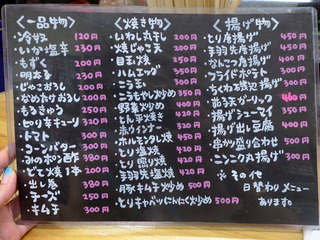 <一品物>
・冷奴 120円
・いか塩辛 230円
・もずく 200円
・明太子 230円
・じゃこおろし 200円
・なめ茸おろし 200円
・もろきゅう 250円
・やりキキューリ
・トマト 300円
・コーンバター 300円
・みのポン酢 380円
・どて焼1本 200円
・出し巻 380円
・チーズ 250円
・キムチ 300円
<焼き物>
・いわし丸干し 200円
・焼じゃこ天 200円
・目玉焼 250円
・ハムエッグ 350円
・ニラ玉
・もやし炒め 350円
・野菜炒め 400円
・とん平焼き
・赤ウインナー
・ホルモン焼 450円
・とり塩焼 450円
・とり照り焼 450円
・手羽先塩焼 450円
・豚キムチ炒め 500円
・とりキャベツにんにく炒め 500円
<揚げ物>
・とり唐揚げ 450円
・手羽先唐揚げ 450円
・なんこつ唐揚げ 400円
・フライドポテト 300円
・ちくわ磯辺揚げ 300円
・ガーリック 400円
・揚げシューマイ 350円
・揚げ出し豆腐 400円
・串カツ盛り合わせ 500円
・ニンニク丸揚げ 300円
※その他
日替わりメニュー
あります。